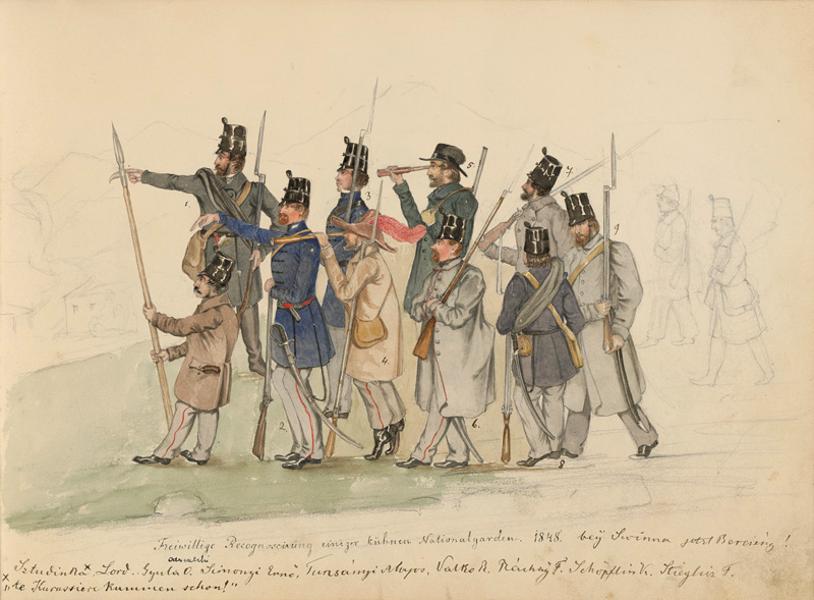 1.
2.
3
4.
5.
6.
7.
8
9
Freiwillige Recognoscirung einiger kühnen Nationalgarden. 1848. bey Swinna jetzt Bereiény!
x Sztudinka Lord. Gyula O. Simonyi Ernő, Turzsányi Majos, Valko R. Ráchay F. Schöpflin K. Stieglitz F.
x "te Kurassiere kummen schon!"